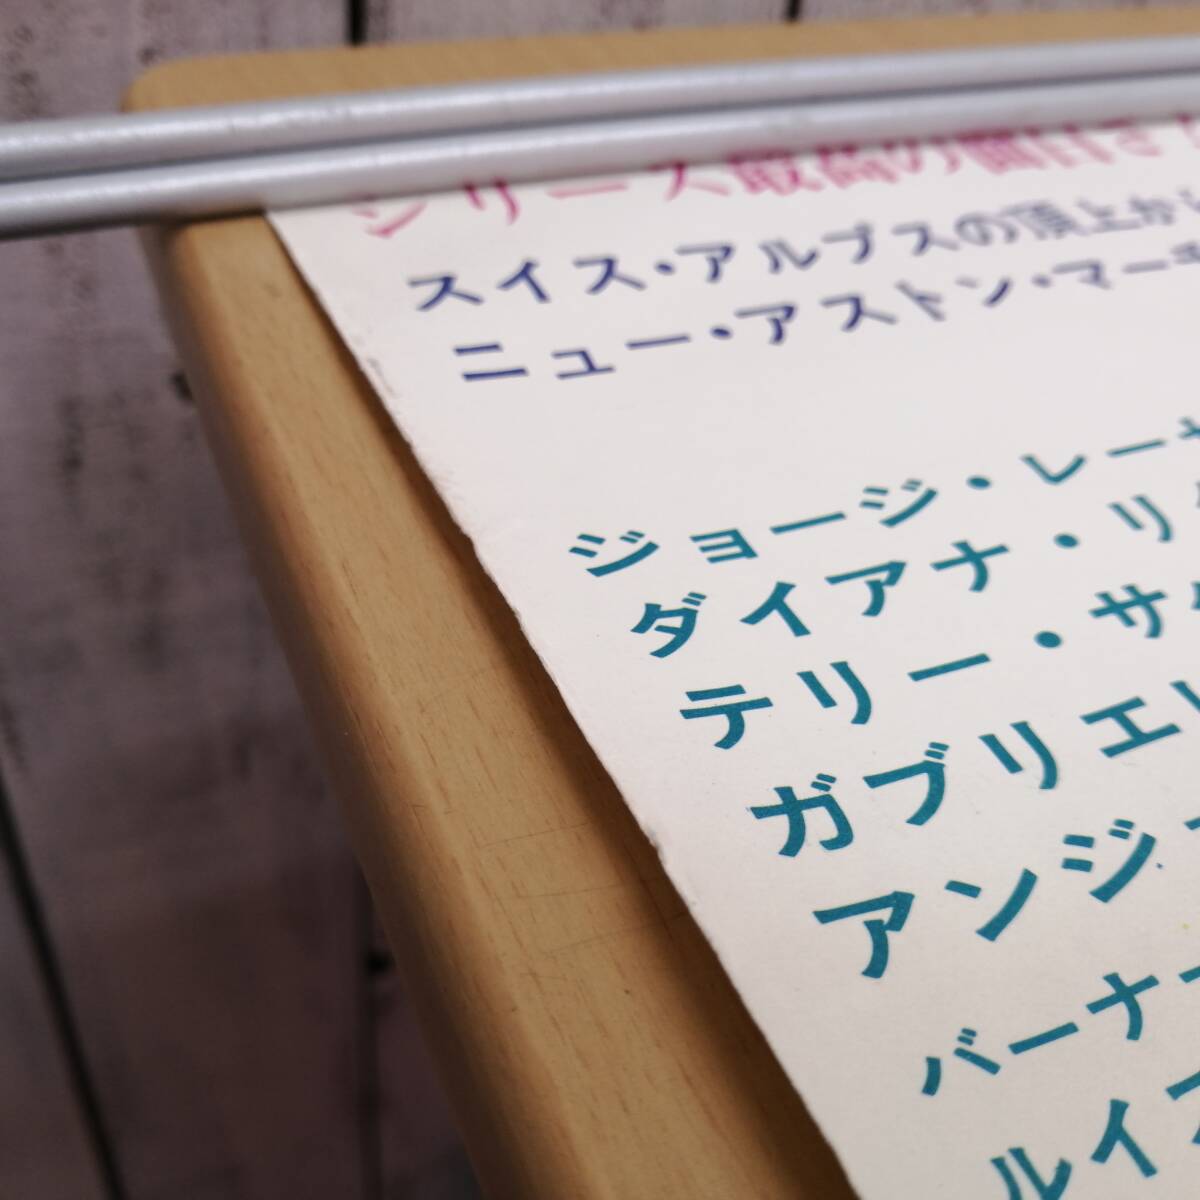 シリーズ最高の面白さ
スイス・アルプスの頂上から
ニュー・アストン・マーチ
ジョージ・レーゼ
ダイアナ・リグ
テリー・サバ
ガブリエレ
アンジェ
バーナー
ルイス